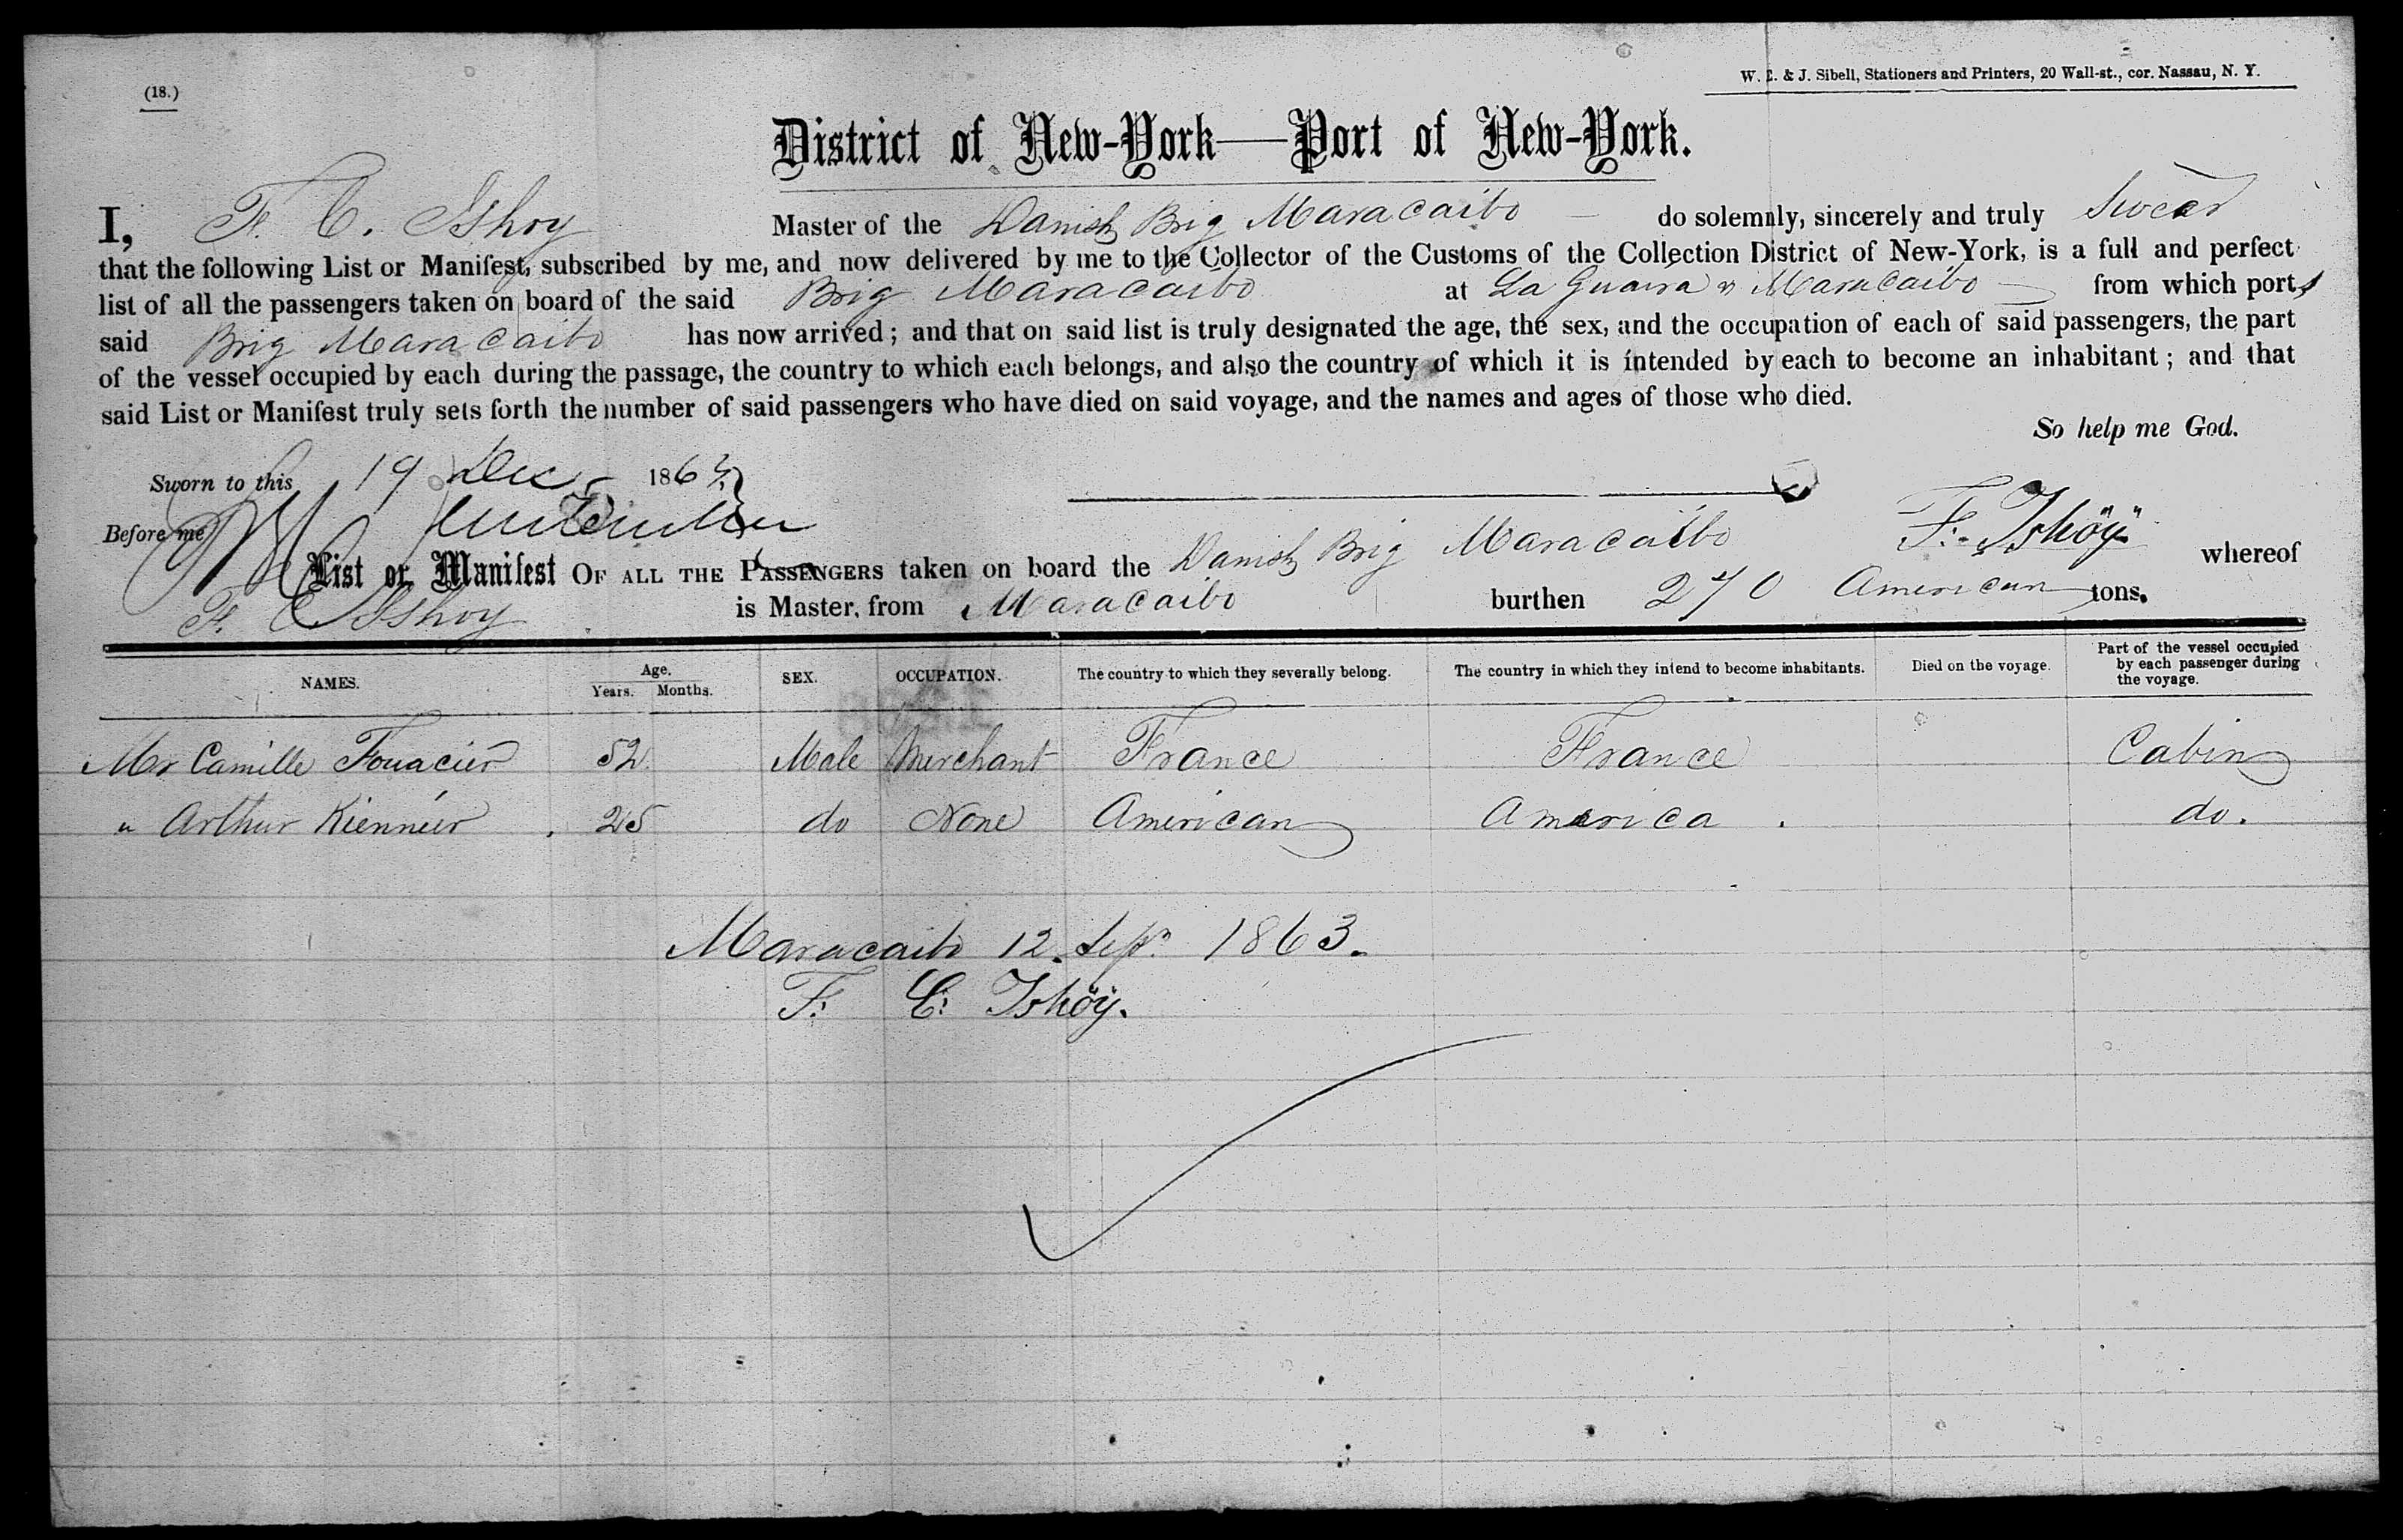 (18.)
W. E. & J. Sibell, Stationers and Printers, 20 Wall-st., cor. Nassau, N. Y.
District of New-York—Port of New-York.
I, F. C. Ishoy Master of the Danish Brig Maracaibo — do solemnly, sincerely and truly Swear
that the following List or Manifest, subscribed by me, and now delivered by me to the Collector of the Customs of the Collection District of New-York, is a full and perfect
list of all the passengers taken on board of the said Brig Maracaibo at La Guaira & Maracaibo — from which ports
said Brig Maracaibo has now arrived; and that on said list is truly designated the age, the sex, and the occupation of each of said passengers, the part
of the vessel occupied by each during the passage, the country to which each belongs, and also the country of which it is intended by each to become an inhabitant; and that
said List or Manifest truly sets forth the number of said passengers who have died on said voyage, and the names and ages of those who died.
So help me God.
Sworn to this 19 Dec 1863
F. Ishöÿ
Before me
List or Manifest OF ALL THE PASSENGERS taken on board the Danish Brig Maracaibo whereof
F. C Ishoy is Master, from Maracaibo burthen 270 American tons.
NAMES. Age. Years. Months. SEX. OCCUPATION. The country to which they severally belong. The country in which they intend to become inhabitants. Died on the voyage. Part of the vessel occupied by each passenger during the voyage.
Mr Camille Fouacier 52 Male Merchant France France Cabin
" Arthur Kiennéir 25 do None American America. do.
Maracaibo 12. Sepr. 1863.
F: C: Ishöÿ.